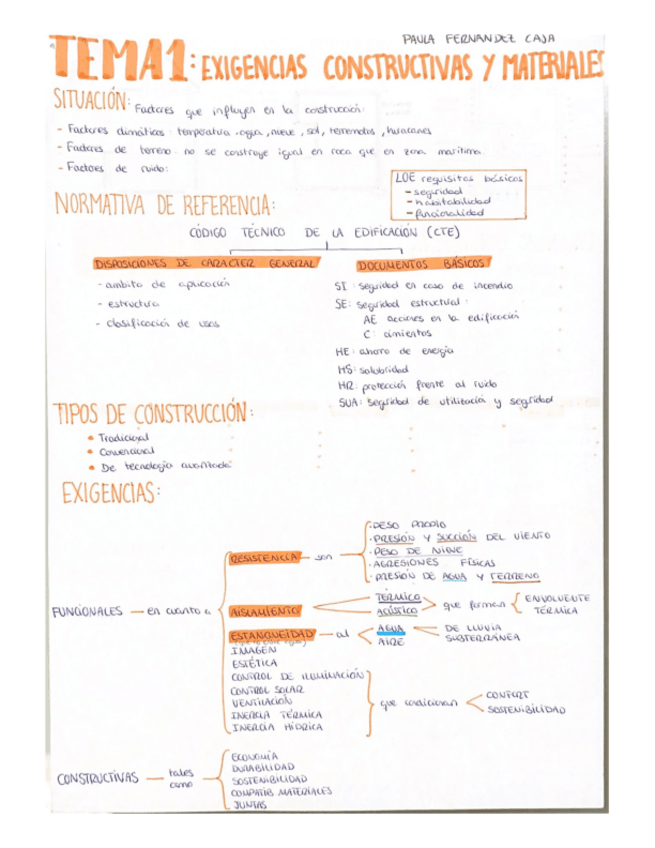 PAULA FERNANDEZ CAJA
TEMA1: EXIGENCIAS CONSTRUCTIVAS Y MATERIALES
SITUACIÓN: Factores que influyen en la construcción:
- Factores climáticos: temperatura, agua, nieve, sol, terremotos, huracanes
- Factores de terreno: no se construye igual en roca que en zona marítima.
- Factores de ruido:
LOE requisitos básicos
- seguridad
- habitabilidad
- funcionalidad
NORMATIVA DE REFERENCIA:
CÓDIGO TÉCNICO DE LA EDIFICACIÓN (CTE)
DISPOSICIONES DE CARACTER GENERAL
- ambito de aplicación
- estructura
- clasificación de usos
DOCUMENTOS BÁSICOS
SI: seguridad en caso de incendio
SE: seguridad estructural:
AE acciones en la edificación
C: cimientos
HE: ahorro de energía
HS: salubridad
HR: protección frente al ruido
SUA: seguridad de utilización y seguridad
TIPOS DE CONSTRUCCIÓN:
• Tradicional
• Convencional
• De tecnología avanzada
EXIGENCIAS:
FUNCIONALES — en cuanto a
RESISTENCIA — son
· PESO PROPIO
· PRESIÓN Y SUCCIÓN DEL VIENTO
· PESO DE NIEVE
· AGRESIONES FÍSICAS
· PRESIÓN DE AGUA Y TERRENO
AISLAMIENTO
TÉRMICO
ACÚSTICO
que forman
ENVOLVENTE
TÉRMICA
ESTANQUEIDAD — al
AGUA
AIRE
DE LLUVIA
SUBTERRÁNEA
IMAGEN
ESTÉTICA
CONTROL DE ILUMINACIÓN
CONTROL SOLAR
VENTILACIÓN
INERCIA TÉRMICA
INERCIA HÍDRICA
que condicionan
CONFORT
SOSTENIBILIDAD
CONSTRUCTIVAS — tales como
ECONOMÍA
DURABILIDAD
SOSTENIBILIDAD
COMPATIB MATERIALES
JUNTAS